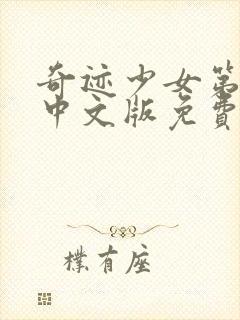 奇迹少女第
中文版免費
樸有座